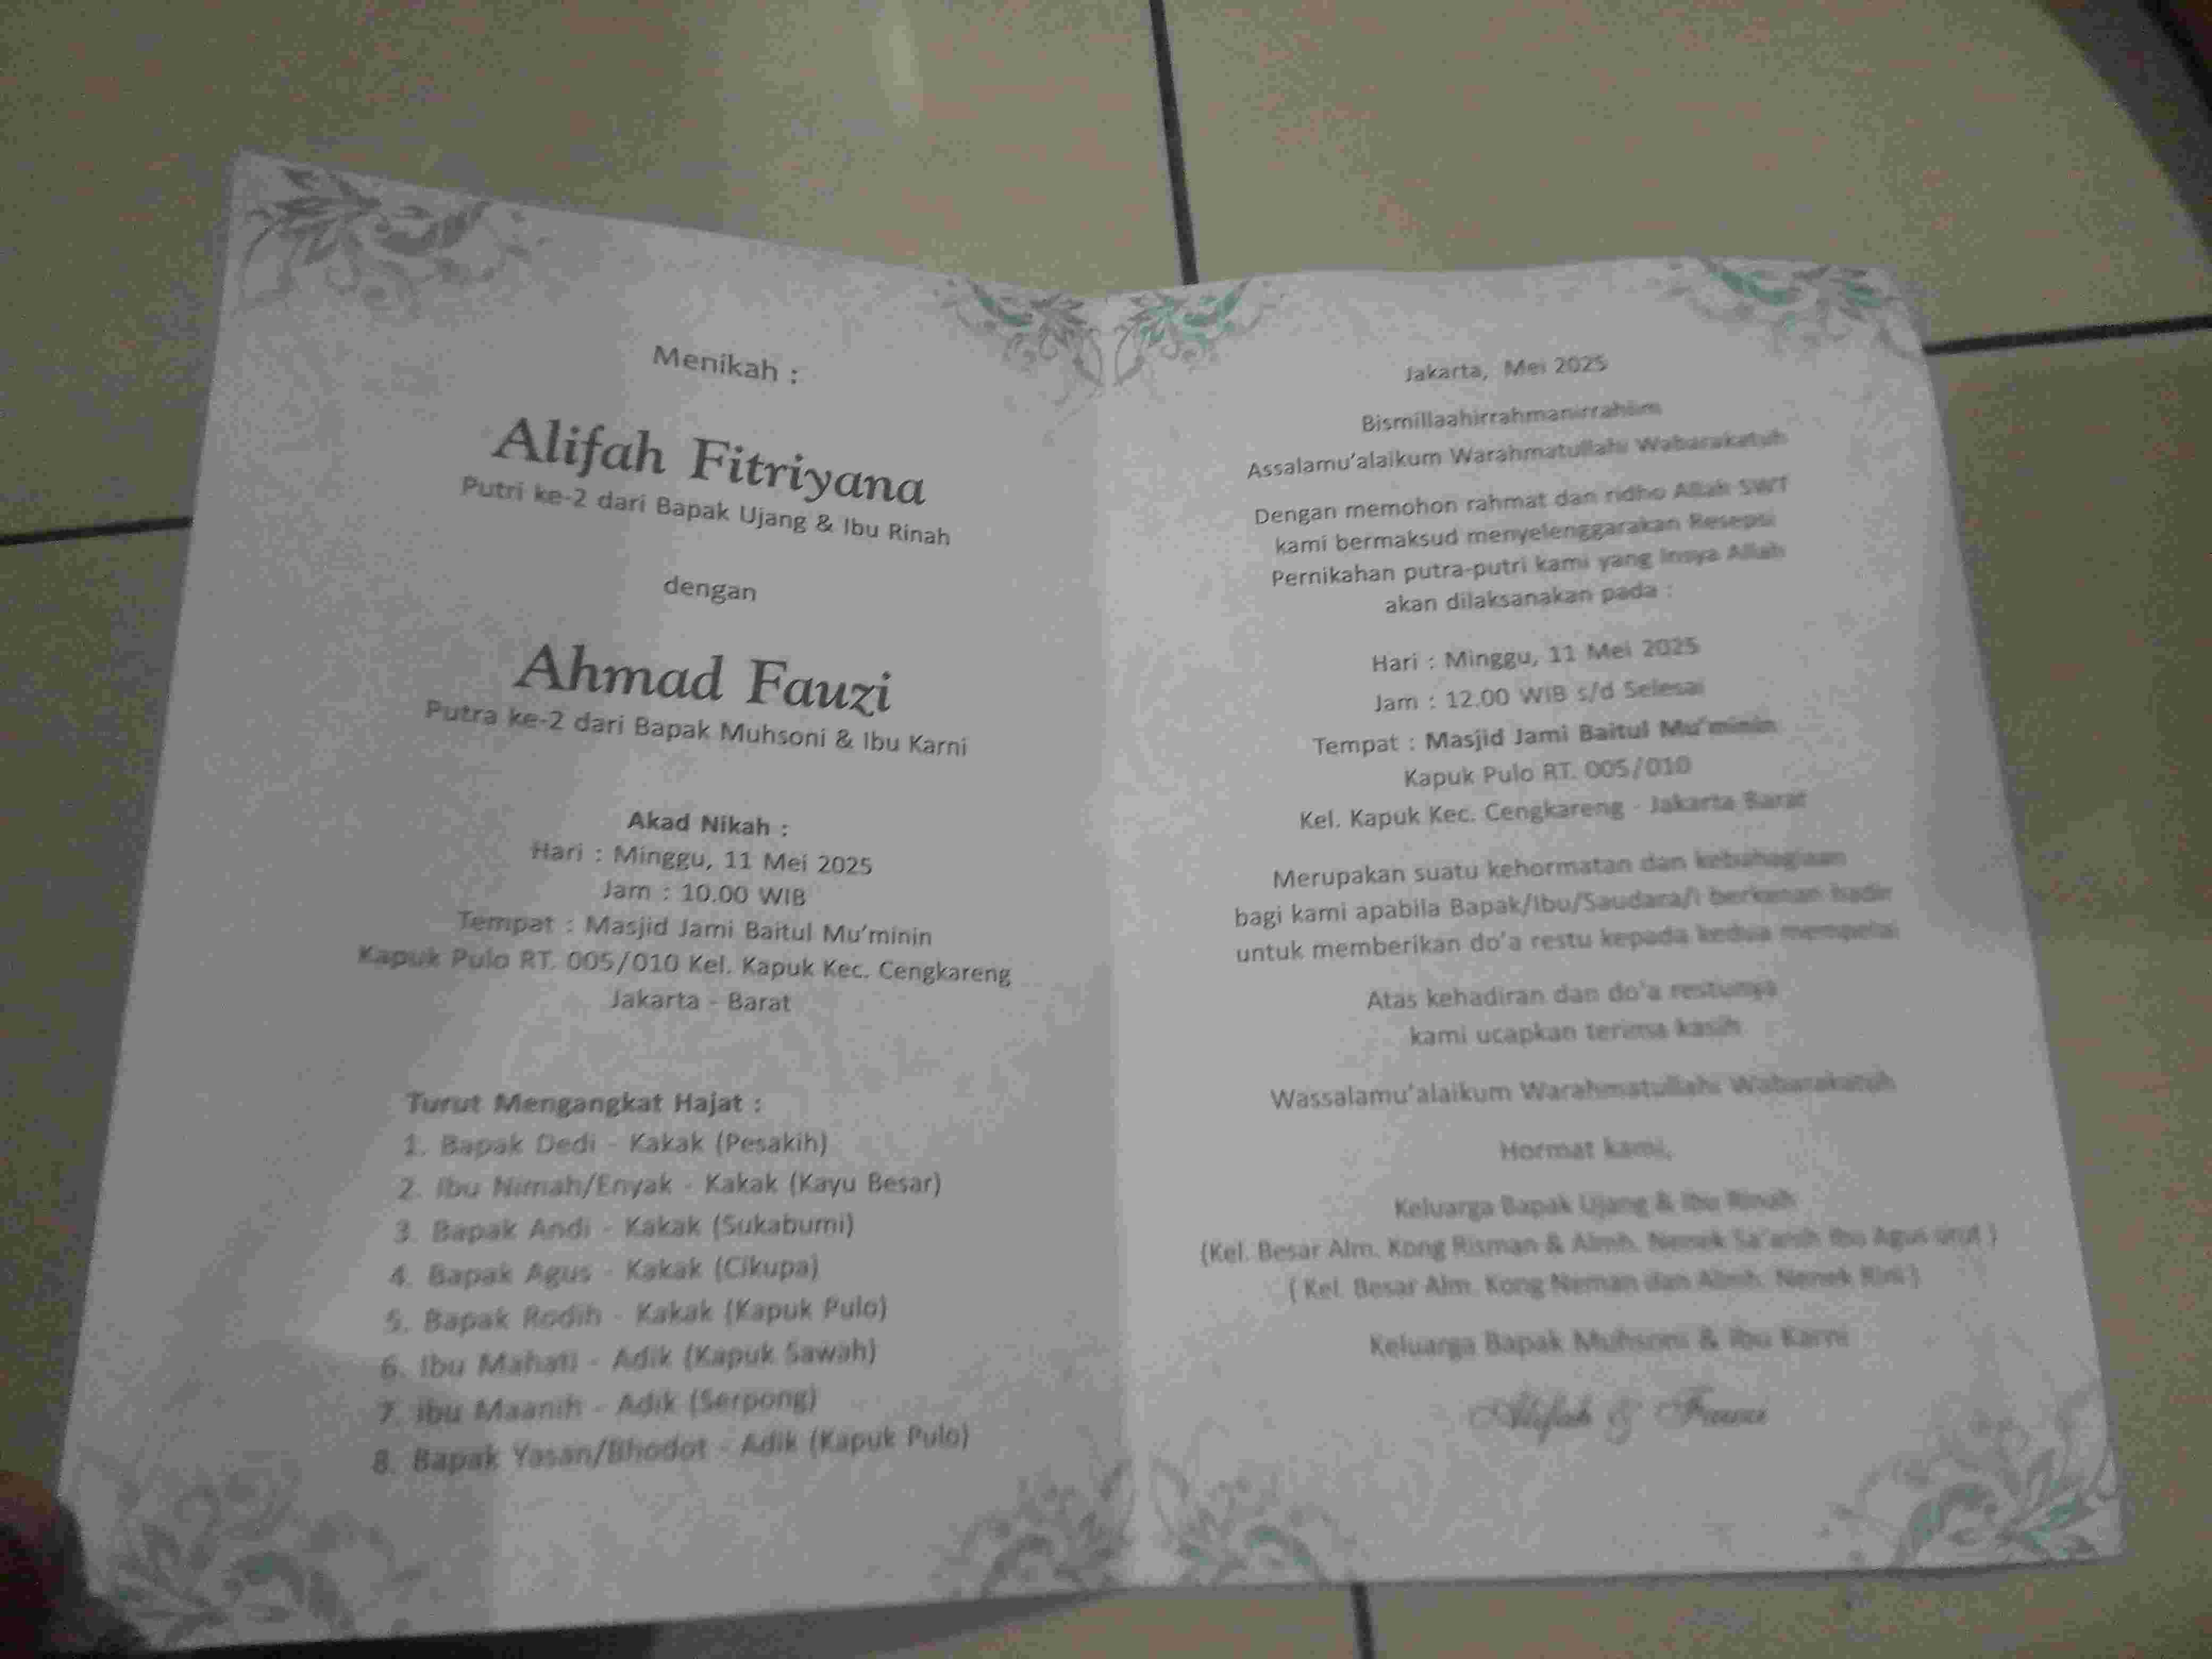 Menikah :
Alifah Fitriyana
Putri ke-2 dari Bapak Ujang & Ibu Rinah
dengan
Ahmad Fauzi
Putra ke-2 dari Bapak Muhsoni & Ibu Karni
Akad Nikah :
Hari : Minggu, 11 Mei 2025
Jam : 10.00 WIB
Tempat : Masjid Jami Baitul Mu'minin
Kapuk Pulo RT. 005/010 Kel. Kapuk Kec. Cengkareng
Jakarta - Barat
Turut Mengangkat Hajat :
1. Bapak Dedi - Kakak (Pesakih)
2. Ibu Nimah/Enyak - Kakak (Kayu Besar)
3. Bapak Andi - Kakak (Sukabumi)
4. Bapak Agus - Kakak (Cikupa)
5. Bapak Rodih - Kakak (Kapuk Pulo)
6. Ibu Mahati - Adik (Kapuk Sawah)
7. Ibu Maanih - Adik (Serpong)
8. Bapak Yasan/Bhodot - Adik (Kapuk Pulo)
Jakarta, Mei 2025
Bismillaahirrahmanirrahiim
Assalamu'alaikum Warahmatullahi Wabarakatuh
Dengan memohon rahmat dan ridho Allah SWT
kami bermaksud menyelenggarakan Resepsi
Pernikahan putra-putri kami yang Insya Allah
akan dilaksanakan pada :
Hari : Minggu, 11 Mei 2025
Jam : 12.00 WIB s/d Selesai
Tempat : Masjid Jami Baitul Mu'minin
Kapuk Pulo RT. 005/010
Kel. Kapuk Kec. Cengkareng - Jakarta Barat
Merupakan suatu kehormatan dan kebahagiaan
bagi kami apabila Bapak/Ibu/Saudara/i berkenan hadir
untuk memberikan do'a restu kepada kedua mempelai
Atas kehadiran dan do'a restunya
kami ucapkan terima kasih
Wassalamu'alaikum Warahmatullahi Wabarakatuh
Hormat kami,
Keluarga Bapak Ujang & Ibu Rinah
(Kel. Besar Alm. Kong Risman & Almh. Nenek Ibu Agus )
( Kel. Besar Alm. Kong Neman dan Almh. Nenek Rini )
Keluarga Bapak Muhsoni & Ibu Karni
Alifah & Fauzi